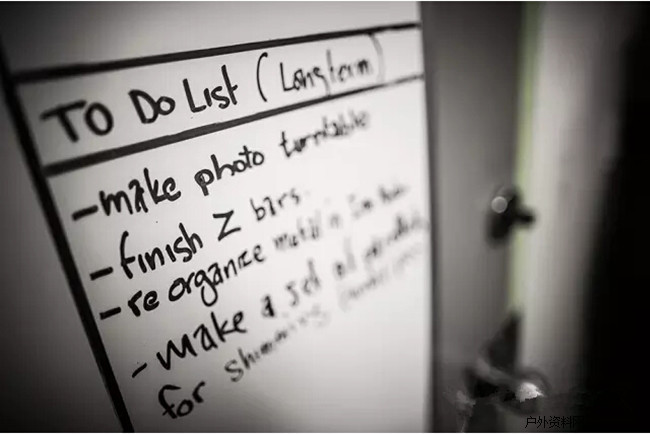 TO DO LIST (Longterm)
- make photo turntable
- finish Z bars.
- re organize metal in
- make a set of parallels
for shimming
户外资料